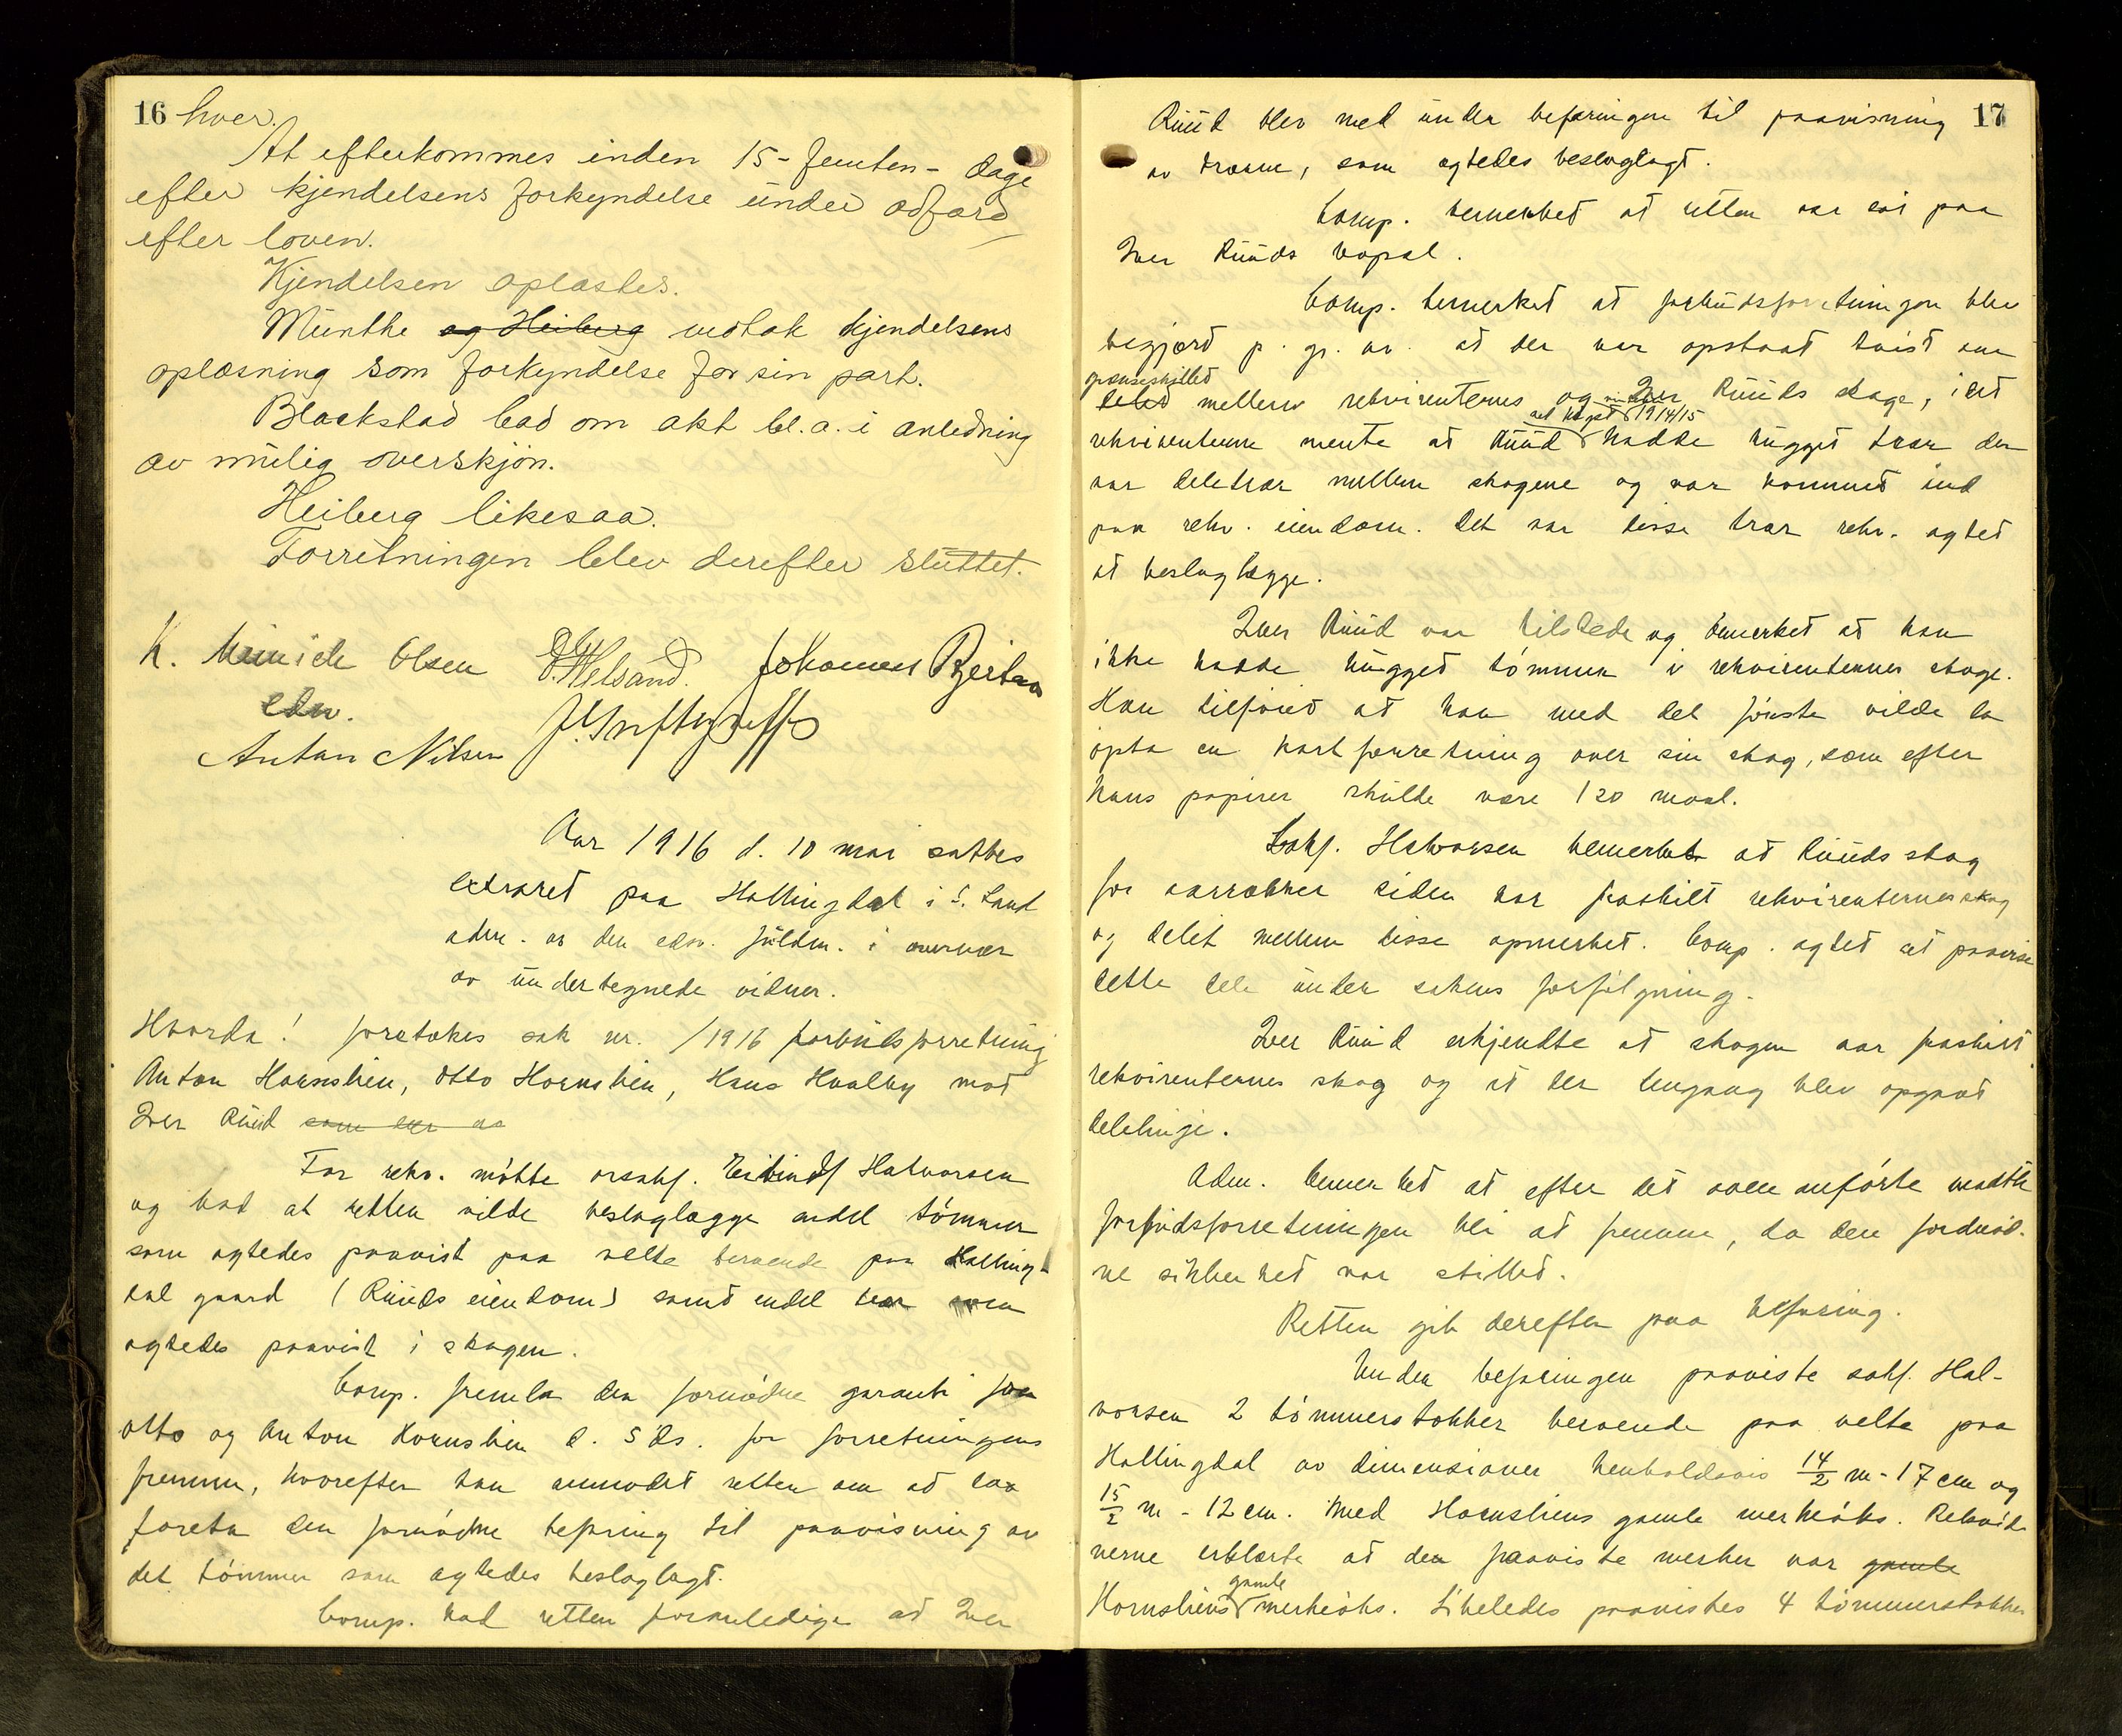 16 hver.
At efterkommes inden 15 - femten - dage
efter kjendelsens forkyndelse under adfærd
efter loven.
Kjendelsen oplæstes.
Munthe og Heiberg vedtok kjendelsens
oplæsning som forkyndelse for sin part.
Blackstad bad om akt bl.a. i anledning
av mulig overskjøn.
Heiberg likesaa.
Forretningen blev derefter sluttet.
K. Olsen Helsand. Johannes
edv.
Anton Nilsen
Aar 1916 d. 10 mai sattes
extraret paa Hallingdal i S. Land
adm. av den edsv. fuldm. i overvær
av undertegnede vidner.
Hvorda! foretokes sak nr. /1916 forbudsforretning
Anton Hornslien, Otto Hornslien, Hans Hvalby mot
Iver Ruud som er av
For rekv. møtte orsakf. Eivind Halvorsen
og bad at retten vilde beslaglægge endel tømmer
som agtedes paavist paa velte beroende paa Halling-
dal gaard (Ruuds eiendom) samt endel trær som
agtedes paavist i skogen.
Comp. fremla den fornødne garanti fra
Otto og Anton Hornslien d. 5 ds. for forretningens
fremme, hvorefter han anmodet retten om at
foreta den fornødne befaring til paavisning av
det tømmer som agtedes beslaglagt.
Comp. bad retten foranledige at Iver
17
Ruud blev med under befaringen til paavisning
av trærne, som agtedes beslaglagt.
Comp. bemerket at retten var sat paa
Iver Ruuds bopæl.
Comp. bemerket at forbudsforretningen blev
begjært p. gr. av. at der var opstaat tvist om
grænseskillet
delet mellem rekvirenternes og Iver Ruuds skoge, idet
1914/15
rekvirenterne mente at Ruud hadde hugget trær der
var deletrær mellem skogene og var kommet ind
paa rekv. eiendom. Det var disse trær rekv. agtet
at beslaglægge.
Iver Ruud var tilstede og bemerket at han
ikke hadde hugget tømmer i rekvirenternes skoge.
Han tilføiet at han med det første vilde la
opta en kartforretning over sin skog, som efter
hans papirer skulde være 120 maal.
Sakf. Halvorsen bemerket at Ruuds skog
for aarrækker siden var fraskilt rekvirenternes skog
og delet mellem disse opmerket. Comp. agtet at paavise
dette dele under sakens forfølgning.
Iver Ruud erkjendte at skogen var fraskilt
rekvirenternes skog og at der dengang blev opgaat
delelinje.
Adm. bemerket at efter det oven anførte maatte
forbudsforretningen bli at fremme, da den fornød-
ne sikkerhet var stillet.
Retten gik derefter paa befaring.
Under befaringen paaviste sakf. Hal-
vorsen 2 tømmerstokker beroende paa velte paa
Hallingdal av dimensioner henholdsvis 14/2 m - 17 cm og
15/2 m - 12 cm. med Hornsliens gamle merkeøks. Rekvi-
rerne erklærte at den paaviste merker var gamle
gamle
Hornsliens merkeøks. Likeledes paavistes 4 tømmerstokker